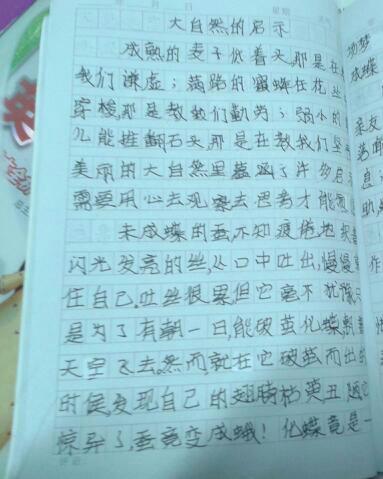 大自然的启示
成熟的麦子低着头,那是在
我们谦虚;满路的蜜蜂在花丛
穿梭,那是教我们勤劳;弱小的
儿能推翻石头,那是在教我们坚
美丽的大自然里蕴涵了许多启
需要用心去观察去思考才能
未成蝶的蚕,不知疲倦地
闪光发亮的丝,从口中吐出,慢慢
住自己.吐丝很累,但它毫不犹豫
是为了有朝一日,能破茧化蝶,朝着
天空飞去.然而就在它破茧而出的
时候,发现自己的翅膀枯黄丑题它
惊异了,蚕竟变成蛾!化蝶竟是一
成蝶
亲友